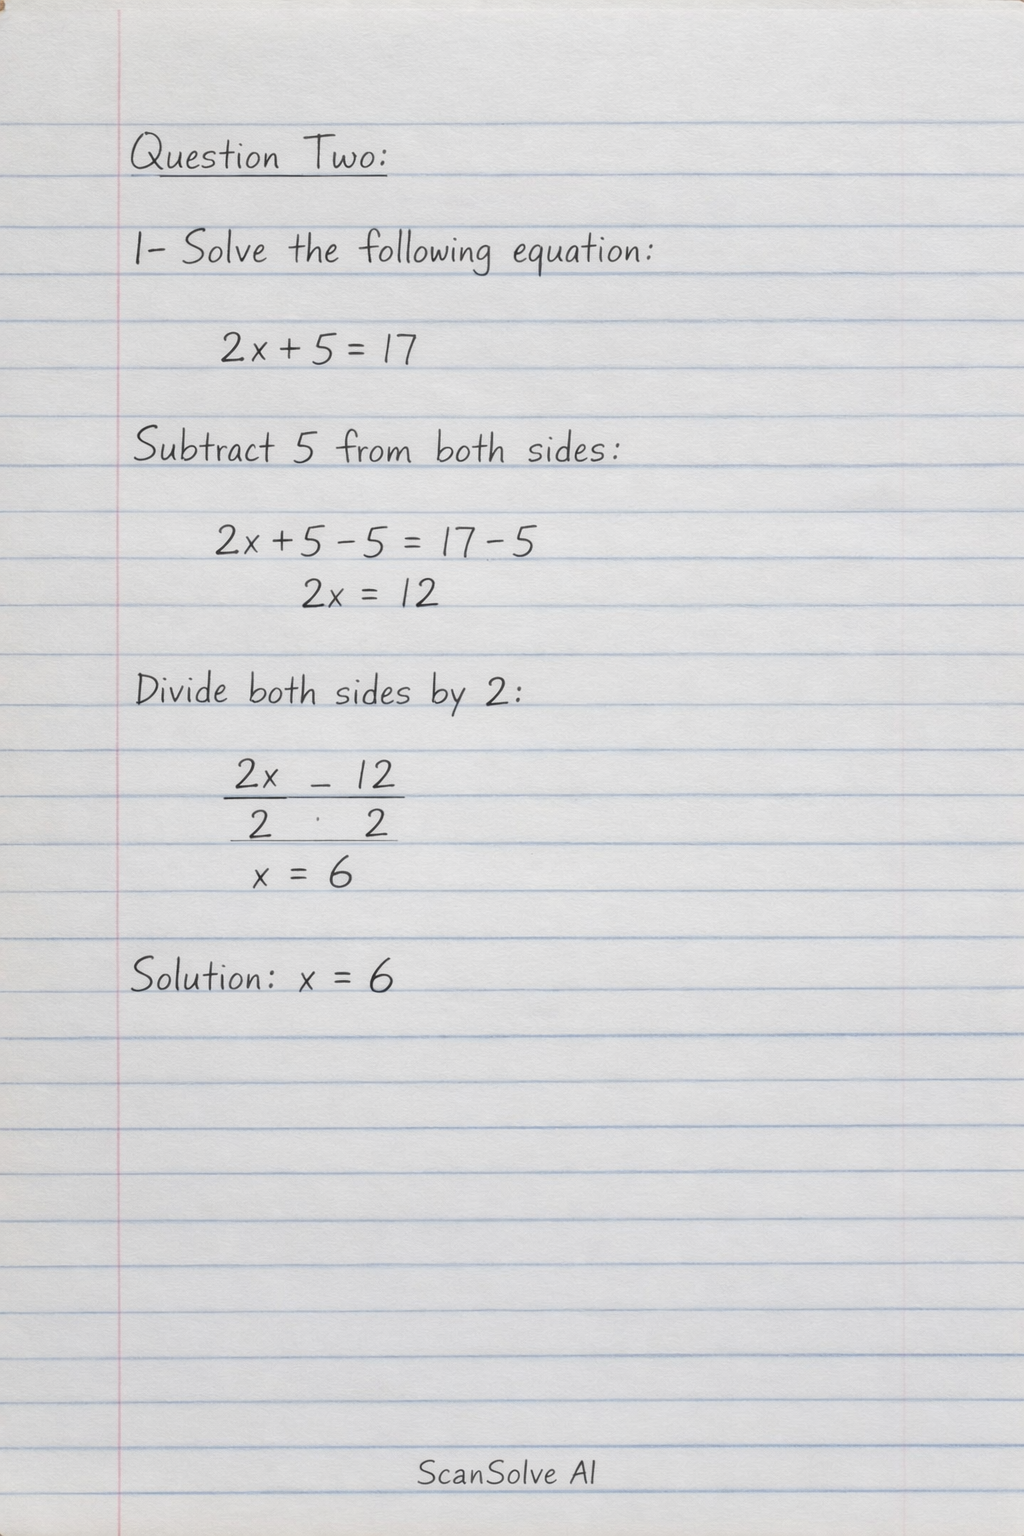 Question Two:
1- Solve the following equation:
2x + 5 = 17
Subtract 5 from both sides:
2x + 5 - 5 = 17 - 5
2x = 12
Divide both sides by 2:
2x − 12
2 · 2
x = 6
Solution: x = 6
ScanSolve AI